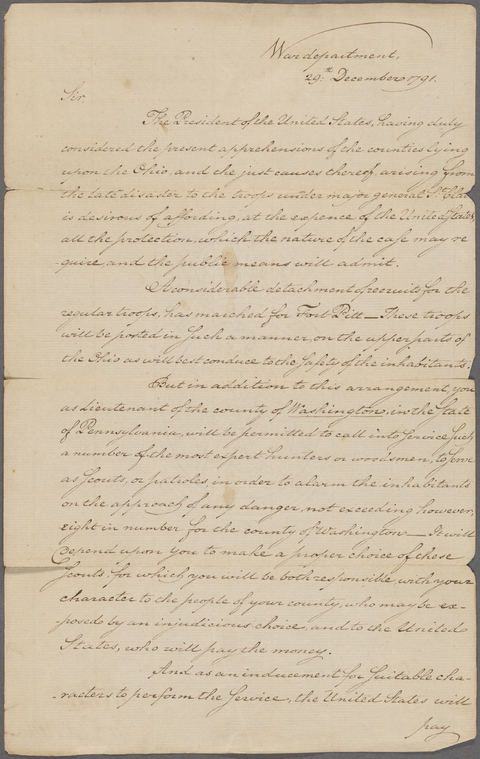 War department,
29th December 1791.
Sir
The President of the United States, having duly
considered the present apprehensions of the counties lying
upon the Ohio, and the just causes thereof, arising from
the late disaster to the troops under major general St. Clair
is desirous of affording, at the expence of the United States
all the protection, which the nature of the case may re
-quire, and the public means will admit.
A considerable detachment of recruits for the
regular troops, has marched for Fort Pitt — These troops
will be posted in such a manner, on the upper parts of
the Ohio as will best conduce to the safety of the inhabitants.
But in addition to this arrangement, you
as Lieutenant of the county of Washington, in the State
of Pennsylvania, will be permitted to call into service such
a number of the most expert hunters or woodsmen, to serve
as Scouts, or patroles, in order to alarm the inhabitants
on the approach of any danger, not exceeding however,
eight in number for the county of Washington — It will
depend upon you to make a proper choice of these
Scouts for which you will be both responsible, with your
character to the people of your county, who may be ex-
posed by an injudicious choice, and to the United
States, who will pay the money.
And as an inducement for suitable cha-
-racters to perform the service, the United States will
pay